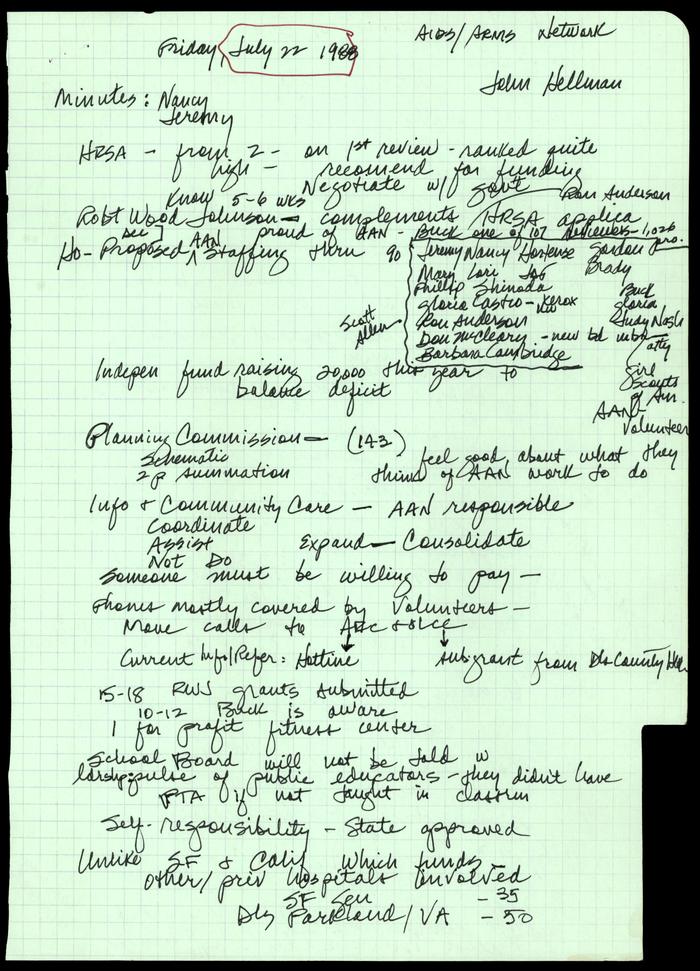 Friday, July 22 1988
AIDS/ARMS Network
John Hellman
Minutes: Nancy
Jeremy
HRSA - from 2 - on 1st review - ranked quite
high - recomend for funding
Negotiate w/ govt
Know 5-6 wks
Ron Anderson
Robt Wood Johnson - complements HRSA applica
proud of AAN - Buck one of 107 reviewers - 1,026 pro.
Ho - Proposed AAN Staffing thru 90
Jeremy Nancy Hortense Gordon
Mary Lori Brady
Phillip Shinoda
Gloria Castro - Xerox
Ron Anderson
Don McCleary - new bd mbr
Barbara Cambridge
Scott
Allen
Buck
Gloria
Judy Nash
atty
Girl
Scouts
of Am.
AAN
Volunteer
Indepen fund raising 20,000 this year to
balance deficit
Planning Commission - (143)
Schematic
2p summation
feel good about what they
think of AAN work to do
Info & Community Care - AAN responsible
Coordinate
Assist
Not Do
Expand - Consolidate
Someone must be willing to pay -
Phones mostly covered by Volunteers -
Move calls to ARC
Current Info/Refer: Hotline
subgrant from Dls County
15-18 RWJ grants submitted
10-12 Buck is aware
1 for profit fitness center
School Board will not be told
pulse of public educators - they didn't have
PTA if not taught in classrm
Self-responsibility - State approved
Unlike SF & Calif which funds -
Other/priv hospitals involved
SF Gen - 35
Dls Parkland/VA - 50